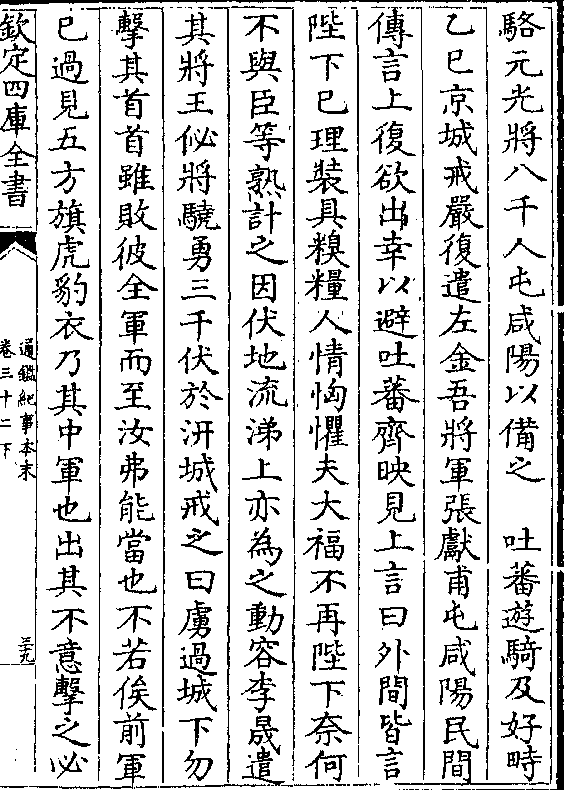 駱元光將八千人屯咸陽以備之　吐蕃遊騎及好畤
乙巳京城戒嚴復遣左金吾將軍張獻甫屯咸陽民間
傳言上復欲出幸以避吐蕃齊映見上言曰外間皆言
陛下已理裝具糗糧人情恟懼夫大福不再陛下奈何
不與臣等熟計之因伏地流涕上亦為之動容李晟遣
其將王佖將驍勇三千伏於汧城戒之曰虜過城下勿
擊其首首雖敗彼全軍而至汝弗能當也不若俟前軍
已過見五方旗虎豹衣乃其中軍也出其不意擊之必
欽定四庫全書
通鑑紀事本末
卷三十二下
三九